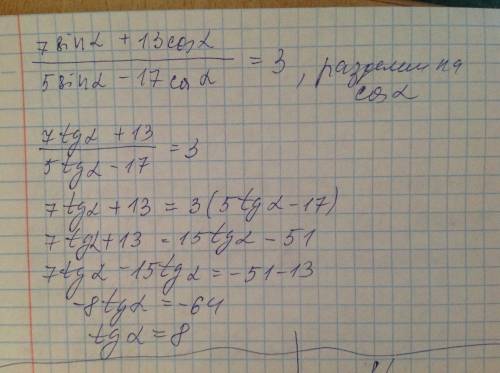 (7 sinα + 13 cosα) / (5 sinα - 17 cosα) = 3, разделим на cosα
(7 tgα + 13) / (5 tgα - 17) = 3
7 tgα + 13 = 3 (5 tgα - 17)
7 tgα + 13 = 15 tgα - 51
7 tgα - 15 tgα = -51 - 13
-8 tgα = -64
tgα = 8